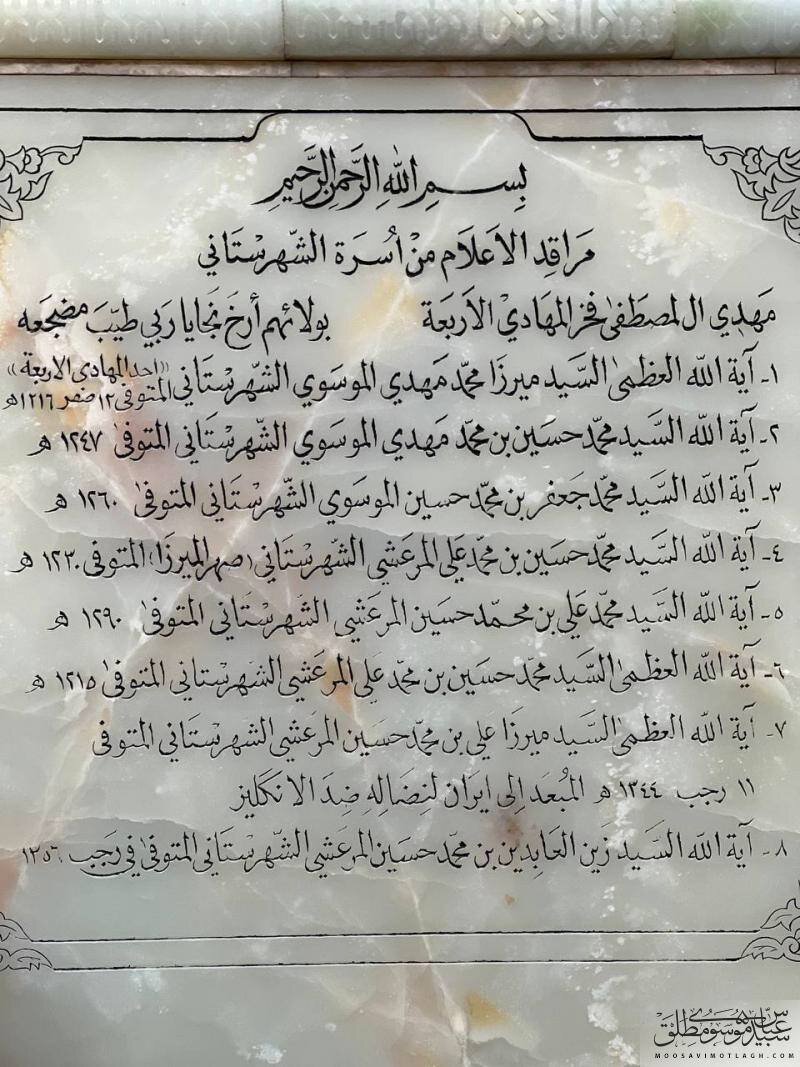 بِسْمِ اللهِ الرَّحمنِ الرَّحيمِ
مَرَاقِد الاَعلَام مِنْ اُسرَة الشّهرسْتَاني
مَهدِي ال المصطَفىٰ فخر المهَاديْ الاَربعَة بولائهم أرخَ نجَايا رَبي طيّبَ مضجعَه
١- آيَة اللّه العظمىٰ السَّيد ميرزَا محمّد مَهدي الموسَوي الشّهرسْتَاني «احد المهادي الاربعة» المتوفى ١٢ صفر ١٢١٦ هـ
٢- آيَة اللّه السَّيد محمّد حسَين بن محمّد مَهدي الموسَوي الشّهرسْتَاني المتوفىٰ ١٢٤٧ هـ
٣- آيَة اللّه السَّيد محمّد جَعفر بن محمّد حسين الموسَوي الشّهرسْتَاني المتوفىٰ ١٢٦٠ هـ
٤- آيَة اللّه السَّيد محمّد حسَين بن محمّد عَلي المرعَشي الشّهرسْتَاني (صهر الميرزَا) المتوفى ١٢٣٠ هـ
٥- آيَة اللّه السَّيد محمّد عَلي بن محمّد حسَين المرعَشي الشهرسْتَاني المتوفىٰ ١٢٩٠ هـ
٦- آيَة اللّه العظمىٰ السَّيد محمّد حسَين بن محمّد عَلي المرعَشي الشهرسْتاني المتوفىٰ ١٢١٥ هـ
٧- آيَة اللّه العظمىٰ السَّيد ميرزَا عَلي بن محمّد حسَين المرعَشي الشهرسْتَاني المتوفىٰ
١١ رجب ١٣٤٤ هـ المُبعَد اِلى ايرَان لنِضَالِهِ ضِدَ الانكليز
٨- آيَة اللّه السَّيد زَين العَابِدين بن محمّد حسَين المرعَشي الشّهرسْتَاني المتوفىٰ في رَجَب ١٣٥٦
سید عباس موسوی مطلق
MOOSAVIMOTLAGH.COM